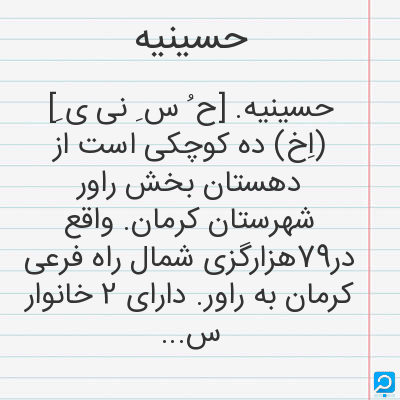 حسینیه
حسینیه. [ح ُ س ِ نی ی ِ]
(اِخ) ده کوچکی است از
دهستان بخش راور
شهرستان کرمان. واقع
در۷۹هزارگزی شمال راه فرعی
کرمان به راور. دارای ۲ خانوار
س...